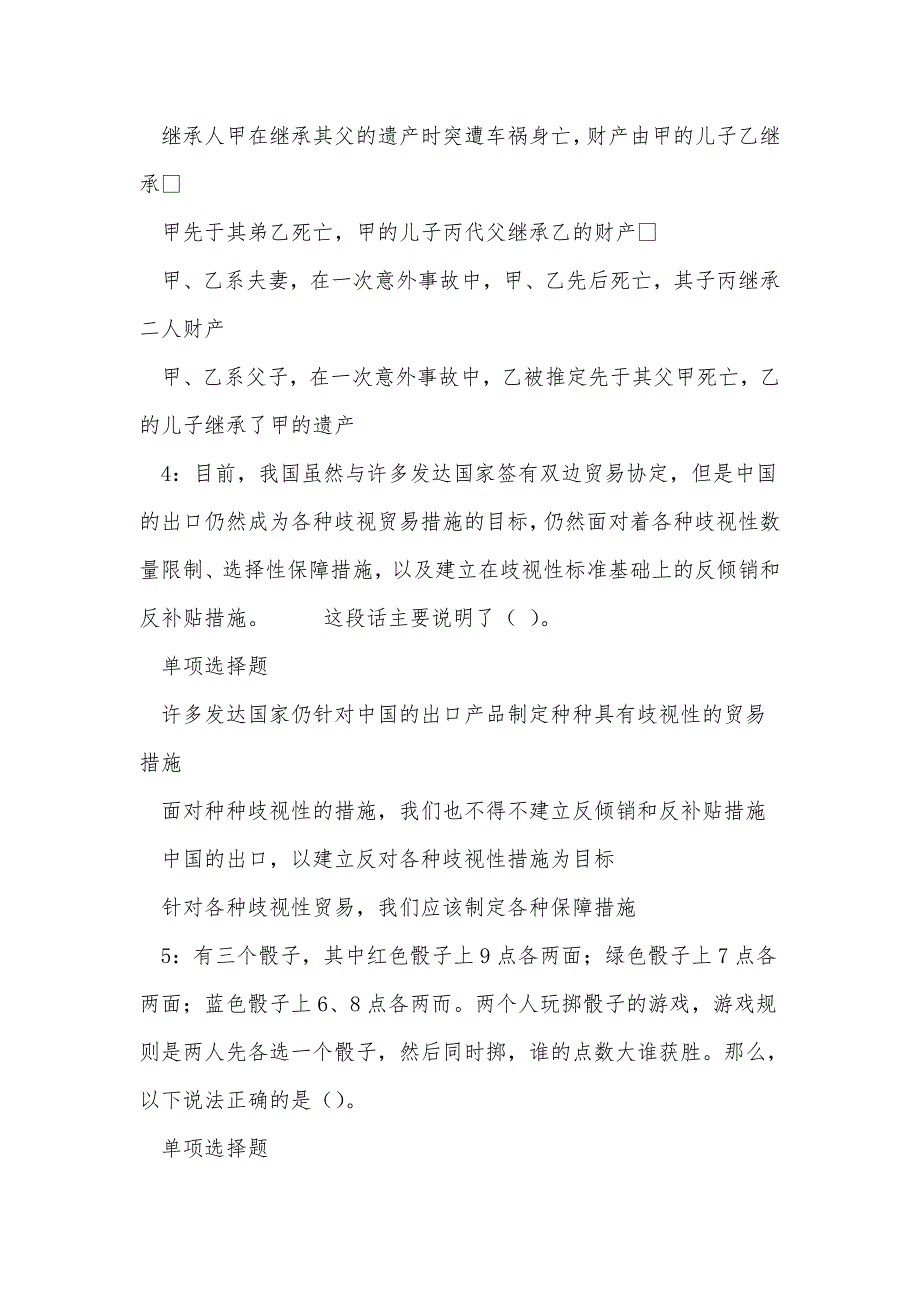 继承人甲在继承其父的遗产时突遭车祸身亡，财产由甲的儿子乙继
承□
甲先于其弟乙死亡，甲的儿子丙代父继承乙的财产□
甲、乙系夫妻，在一次意外事故中，甲、乙先后死亡，其子丙继承
二人财产
甲、乙系父子，在一次意外事故中，乙被推定先于其父甲死亡，乙
的儿子继承了甲的遗产
4：目前，我国虽然与许多发达国家签有双边贸易协定，但是中国
的出口仍然成为各种歧视贸易措施的目标，仍然面对着各种歧视性数
量限制、选择性保障措施，以及建立在歧视性标准基础上的反倾销和
反补贴措施。 这段话主要说明了（ ）。
单项选择题
许多发达国家仍针对中国的出口产品制定种种具有歧视性的贸易
措施
面对种种歧视性的措施，我们也不得不建立反倾销和反补贴措施
中国的出口，以建立反对各种歧视性措施为目标
针对各种歧视性贸易，我们应该制定各种保障措施
5：有三个骰子，其中红色骰子上9点各两面；绿色骰子上7点各
两面；蓝色骰子上6、8点各两而。两个人玩掷骰子的游戏，游戏规
则是两人先各选一个骰子，然后同时掷，谁的点数大谁获胜。那么，
以下说法正确的是（）。
单项选择题